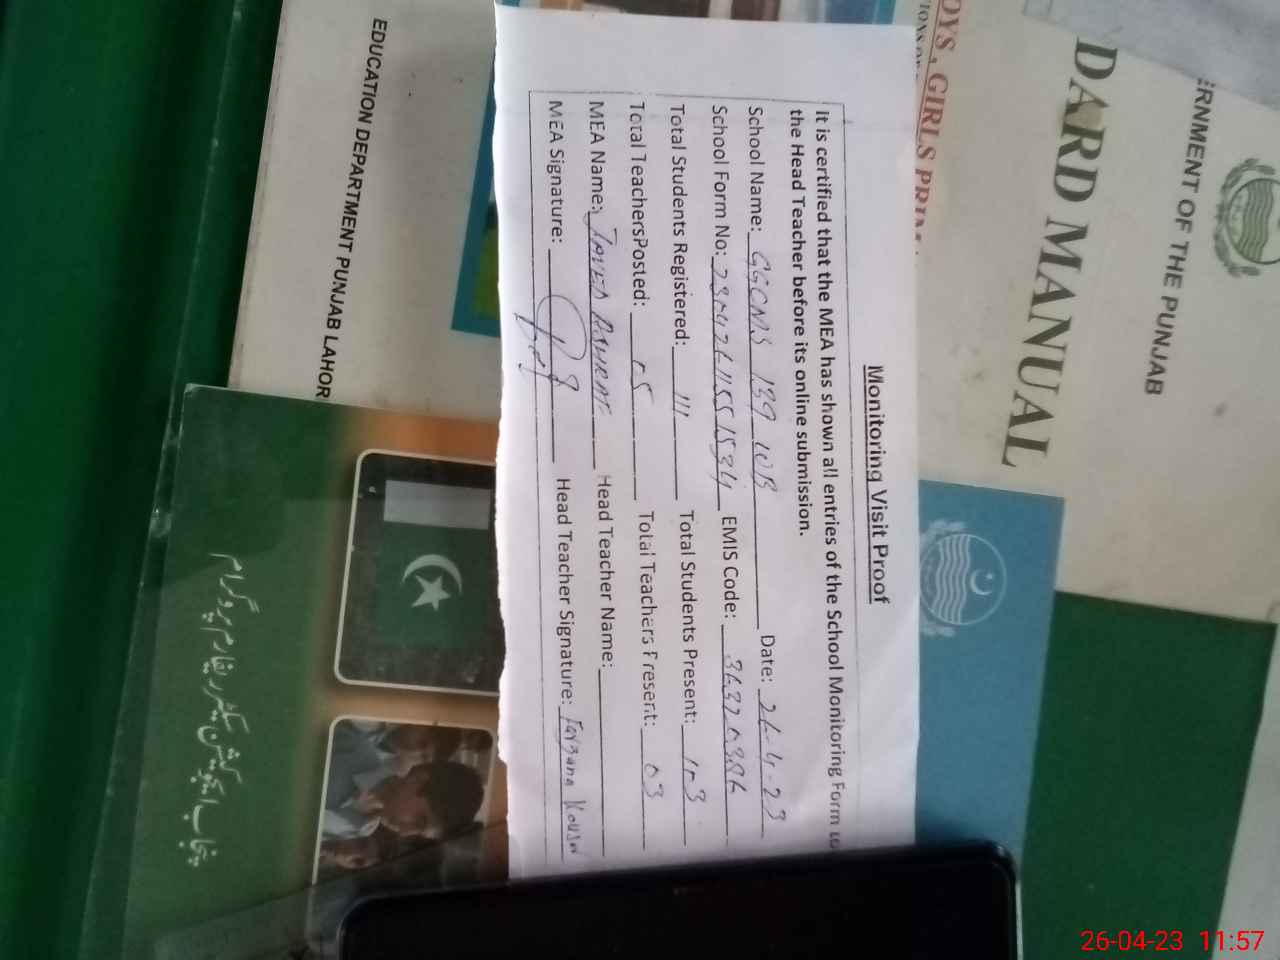 Monitoring Visit Proof
It is certified that the MEA has shown all entries of the School Monitoring Form to
the Head Teacher before its online submission.
School Name: GGCMS 139 10B Date: 26-4-23
School Form No: EMIS Code:
Total Students Registered: 111 Total Students Present: 103
Total TeachersPosted: 05 Total Teachers Present: 03
MEA Name: JAVED Head Teacher Name:
MEA Signature: Head Teacher Signature: Farzana Kousar
ERNMENT OF THE PUNJAB
DARD MANUAL
OYS , GIRLS PRIM
EDUCATION DEPARTMENT PUNJAB LAHOR
پنجاب ایجوکیشن سیکٹر ریفارم پروگرام
26-04-23 11:57